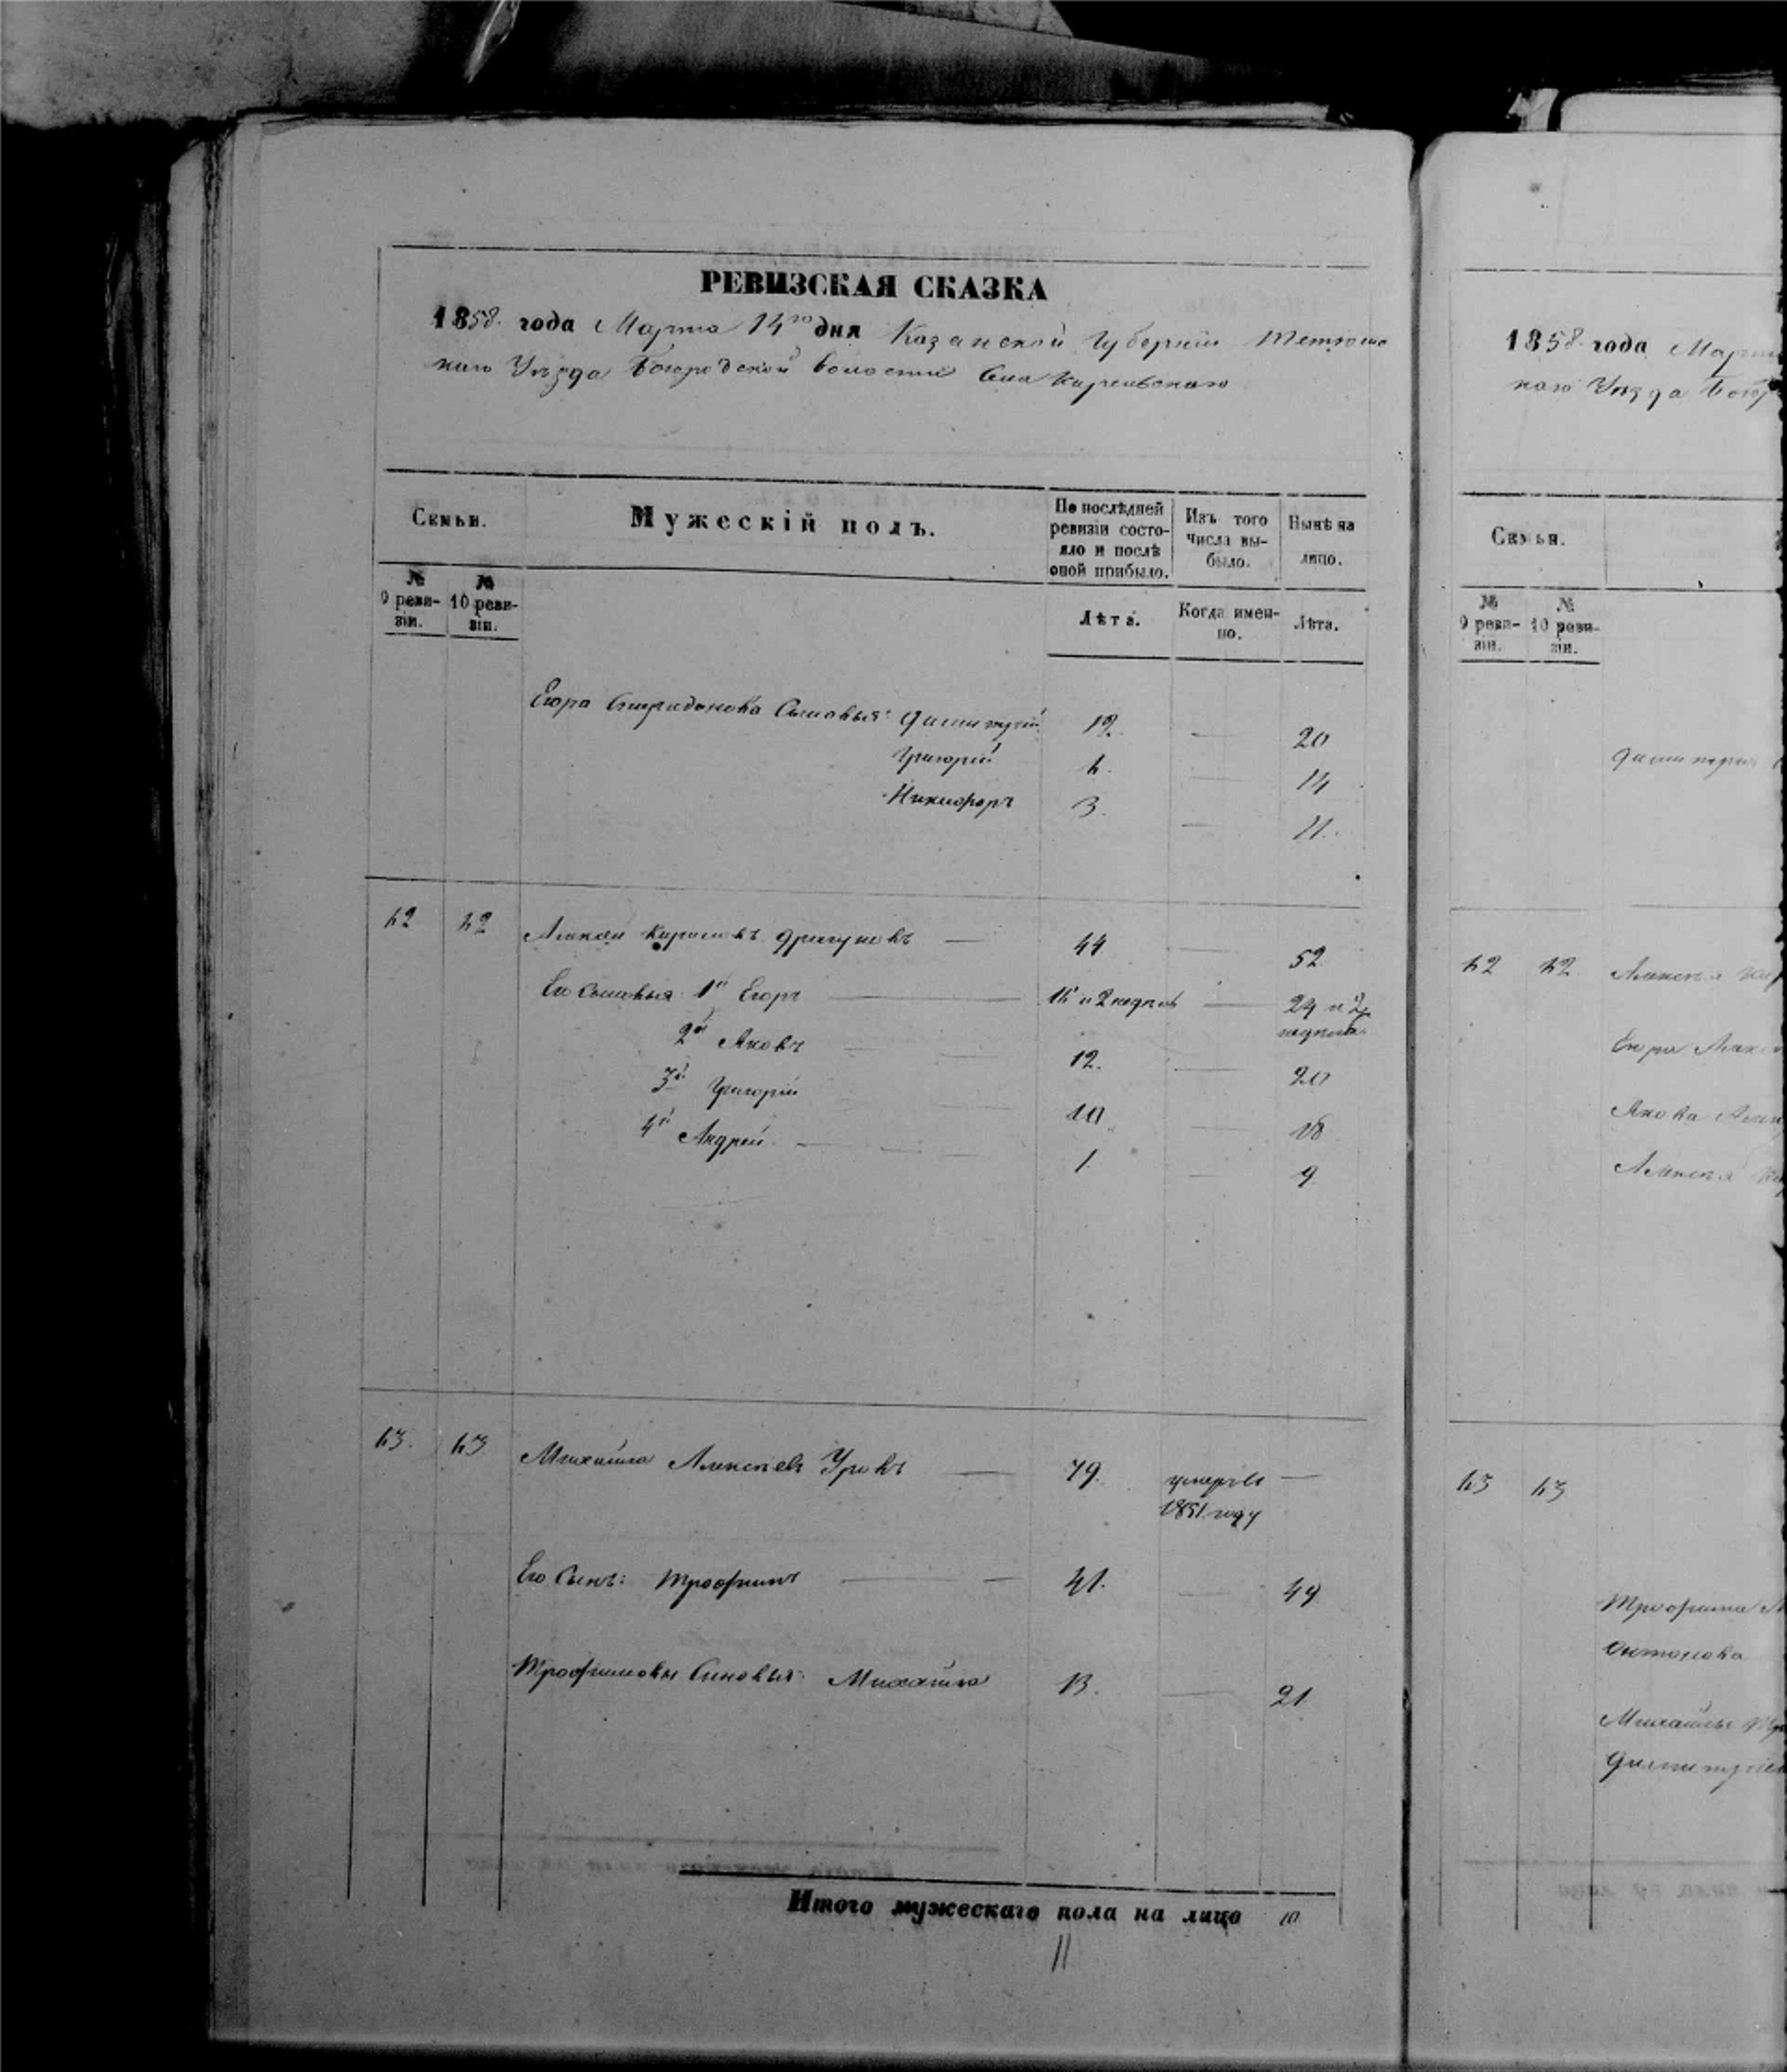 РЕВИЗСКАЯ СКАЗКА
1858. года Марта 14го дня Казанской Губерніи Тетюшс
каго Уѣзда Богородской волости Села
Семьи.
Мужескій полъ.
По послѣдней ревизіи состояло и послѣ оной прибыло.
Изъ того числа выбыло.
Нынѣ на лицо.
№ 9 ревизіи.
№ 10 ревизіи.
Лѣта.
Когда именно.
Лѣта.
Егора Спиридонова Сыновья: Димитрій 12. — 20
Григорій 6. — 14
Никифоръ 3. — 11.
62 62 Алексѣй — 44 — 52
Его Сыновья: 1й Егоръ — 16 и 2 недѣли — 24 и 2 недѣли
2й Яковъ 12. — 20
3й Григорій 10. — 18
4й Андрей — 1. — 9
63. 63. Михайла Алексѣевъ — 79. умеръ въ —
1851 году
Его Сынъ: Трофимъ — 41. — 49
Трофимовы Сыновья: Михайла 13. — 21
Итого мужескаго пола на лицо 10
11
1858 года Марта
каго Уѣзда Богор
Семьи.
№ 9 ревизіи.
№ 10 ревизіи.
62 62 Алексѣя
Егора Алекс
Якова Алек
Алексѣя
63 63
Трофима М
Антонова
Михайлы Тр